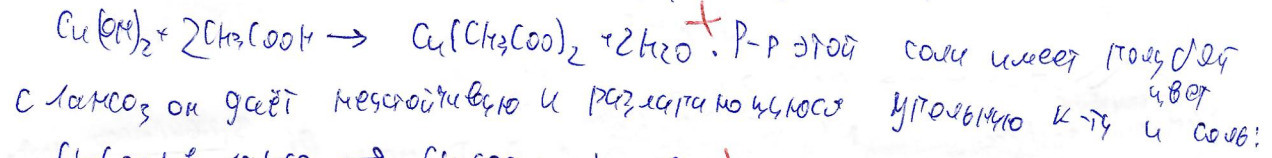 Cu(OH)₂ + 2CH₃COOH → Cu(CH₃COO)₂ + 2H₂O. Р-р этой соли имеет голубой цвет
С NaHCO₃ он даёт неустойчивую и разлагающуюся угольную к-ту и соль: